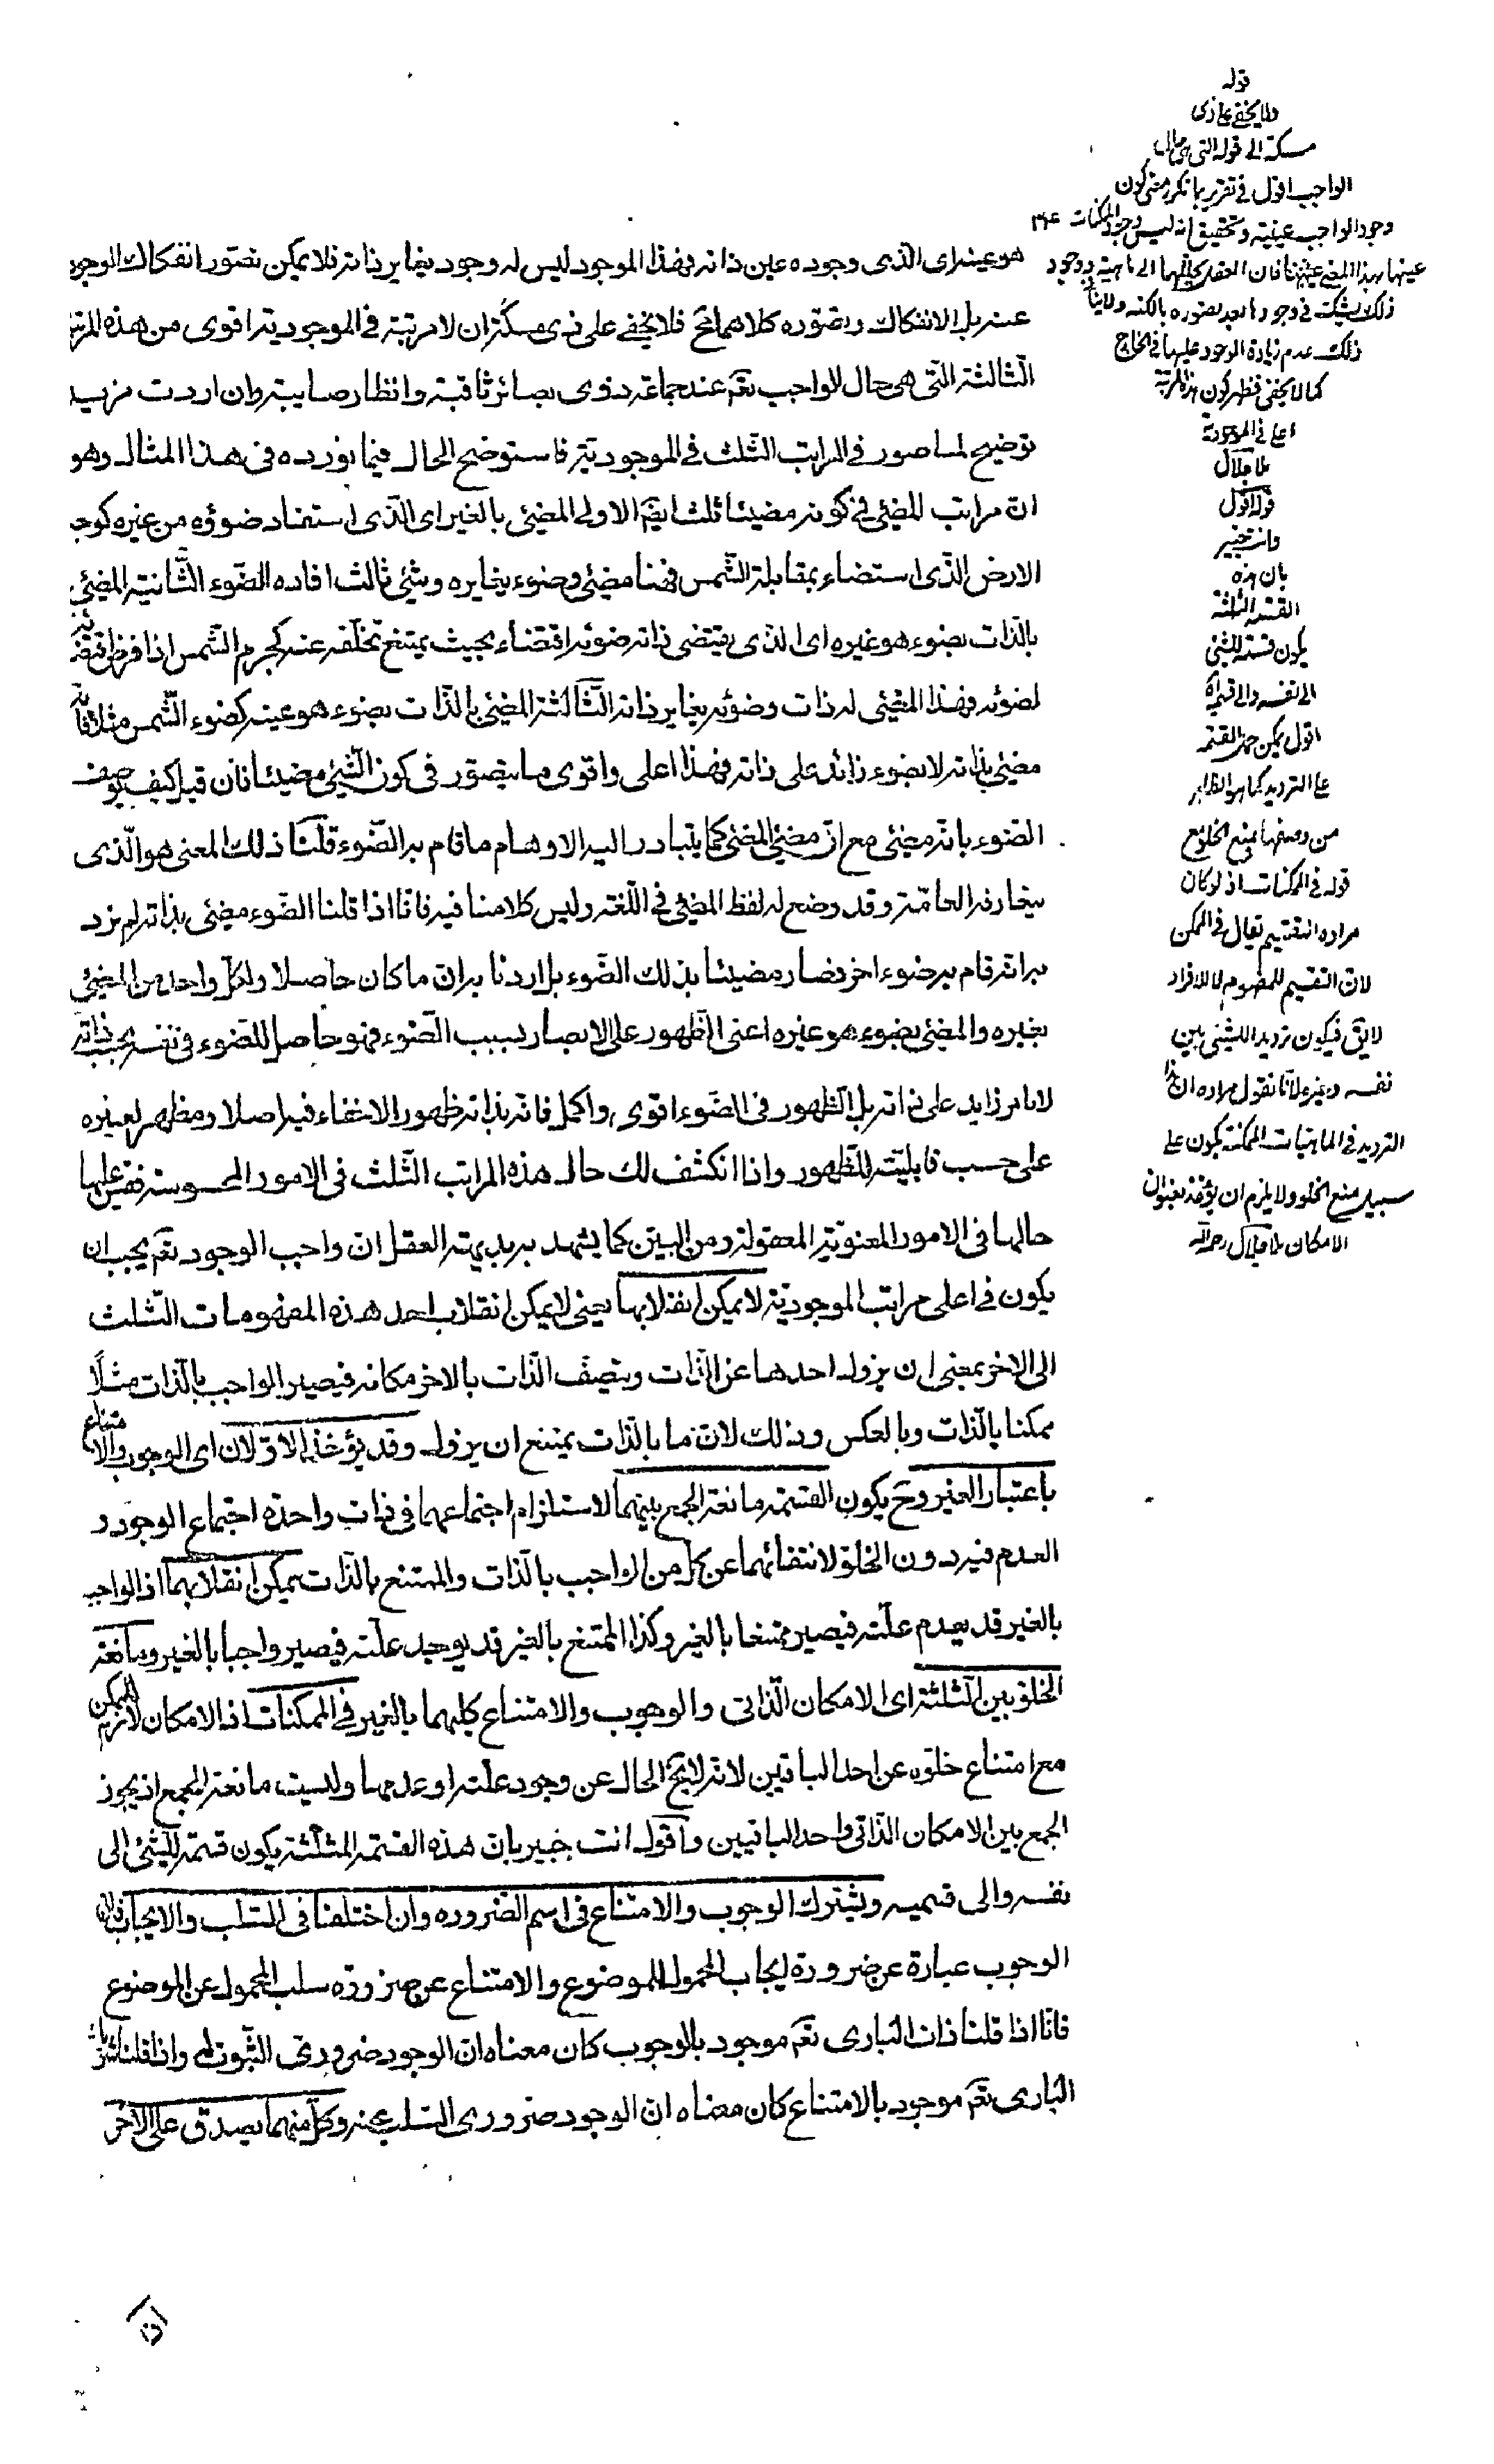 هو عينه اى الذى وجوده عين ذاته فهذا الموجود ليس له وجود يغاير ذاته فلا يمكن تصور انفكاك الوجود
عنه بل الانفكاك وتصوره كلاهما مح فلا يخفى على ذى مسكة ان لا مرتبة فى الموجودية اقوى من هذه المرتبة
الثالثة التى هى حال الواجب تعم عند جماعة ذوى بصائر ثاقبة وانظار صايبة وان اردت مزيد
توضيح لما صور فى المراتب الثلث فى الموجودية فاستوضح الحال فيما نورده فى هذا المثال وهو
ان مراتب المضئ فى كونه مضيئا ثلث ايضم الاولى المضئ بالغير اى الذى استفاد ضوؤه من غيره كوجه
الارض الذى استضاء بمقابلة الشمس فهنا مضئ وضوء يغايره وشئ ثالث افاده الضوء الثانية المضئ
بالذات بضوء هو غيره اى الذى يقتضى ذاته ضوئه اقتضاء بحيث يمتنع تخلفه عنه كجرم الشمس اذا فرض اقتضائه
لضوئه فهذا المضئ له ذات وضوئه يغاير ذاته الثالثة المضئ بالذات بضوء هو عينه كضوء الشمس مثلا فانه
مضئ بذاته لا بضوء زائد على ذاته فهذا اعلى واقوى ما يتصور فى كون الشئ مضيئا فان قيل كيف يوصف
الضوء بانه مضئ مع ان مضئ المضئ كما يتبادر اليه الاوهام ما قام به الضوء قلنا ذلك المعنى هو الذى
يتعارفه العامة وقد وضع له لفظ المضئ فى اللغة وليس كلامنا فيه فانا اذا قلنا الضوء مضئ بذاته لم نرد
به انه قام به ضوء اخر فصار مضيئا بذلك الضوء بل اردنا به ان ما كان حاصلا ولكل واحد من المضئ
بغيره والمضئ بضوء هو غيره اعنى الظهور على الابصار بسبب الضوء فهو حاصل للضوء فى نفسه بحسب ذاته
لا بامر زايد على ذاته بل الظهور فى الضوء اقوى واكمل فانه بذاته ظهور لا خفاء فيه اصلا ومظهر لغيره
على حسب قابليته للظهور واذا انكشف لك حال هذه المراتب الثلث فى الامور المحسوسة فقس عليها
حالها فى الامور المعنوية المعقولة ومن البين كما يشهد به بديهة العقل ان واجب الوجود تعم يجب ان
يكون فى اعلى مراتب الموجودية لا يمكن انقلابها يعنى لا يمكن انقلاب احد هذه المفهومات الثلث
الى الاخر بمعنى ان يزول احدها عن الذات ويتصف الذات بالاخر مكانه فيصير الواجب بالذات مثلا
ممكنا بالذات وبالعكس وذلك لان ما بالذات يمتنع ان يزول وقد يؤخذ الاولان اى الوجوب والامتناع
باعتبار الغير وح يكون القسمة مانعة الجمع بينهما لاستلزام اجتماعهما فى ذات واحدة اجتماع الوجود و
العدم فيه دون الخلو لانتفائهما عن كل من الواجب بالذات والممتنع بالذات يمكن انقلابهما اذ الواجب
بالغير قد يعدم علته فيصير ممتنعا بالغير وكذا الممتنع بالغير قد يوجد علته فيصير واجبا بالغير ومانعة
الخلو بين الثلثة اى الامكان الذاتى والوجوب والامتناع كليهما بالغير فى الممكنات اذ الامكان لازم للممكن
مع امتناع خلوه عن احد الباقين لانه لا يخ الحال عن وجود علته او عدمها وليست مانعة الجمع اذ يجوز
الجمع بين الامكان الذاتى واحد الباقيين واقول انت خبير بان هذه القسمة المثلثة يكون قسمة للشئ الى
نفسه والى قسميه ويشترك الوجوب والامتناع فى اسم الضرورة وان اختلفا فى السلب والايجاب فان
الوجوب عبارة عن ضرورة ايجاب المحمول للموضوع والامتناع عن ضرورة سلب المحمول عن الموضوع
فانا اذا قلنا ذات البارى تعم موجود بالوجوب كان معناه ان الوجود ضرورى الثبوت له واذا قلنا شريك
البارى تعم موجود بالامتناع كان معناه ان الوجود ضرورى السلب عنه وكل منهما يصدق على الاخر
اذ
قوله
فلا يخفى على ذى
مسكة الى قوله التى هى حال
الواجب اقول فى تقرير ما ذكر معنى كون
وجود الواجب عينه وتحقيق انه ليس وجود الممكنات
عينها بهذا المعنى
ذلك يشك فى وجودها بعد تصوره بالكنه ولا ينافى
ذلك عدم زيادة الوجود عليها فى الخارج
كما لا يخفى فظهر كون هذه المرتبة
اعلى فى الموجودية
ملا جلال
قوله اقول
وانت خبير
بان هذه
القسمة الثلثة
يكون قسمة للشئ
الى نفسه والى قسيمه
اقول يمكن حمل القسمة
على الترديد كما هو الظاهر
من وصفها بمنع الخلو مع
قوله فى الممكنات اذ لو كان
مراده التقسيم لقال فى الممكن
لان التقسيم للمفهوم لا للافراد
لا يق فيكون ترديدا للشئ بين
نفسه وغيره لانا نقول مراده ان هذا
الترديد فى الماهيات الممكنة يكون على
سبيل منع الخلو ولا يلزم ان يؤخذ بعنوان
الامكان ملا جلال رحمه الله